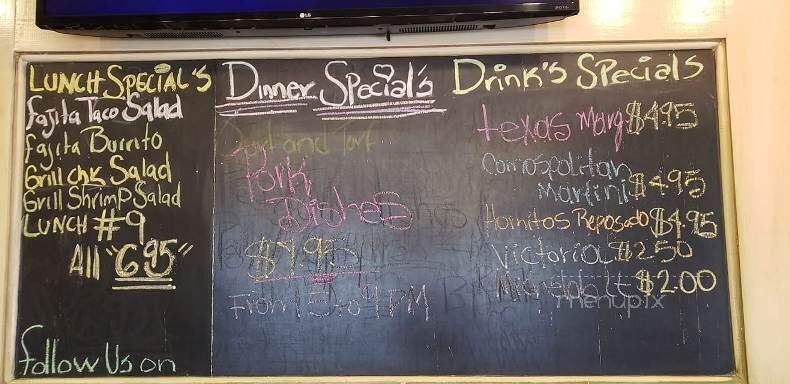 LG
LUNCH SPECIAL'S
fajita Taco Salad
fajita Burrito
Grill chk Salad
Grill Shrimp Salad
LUNCH #9
All "6.95"
follow Us on
Dinner Special's
Pork
Dishes
$7.95
From 5 to 9 PM
Drink's Specials
texas Marg $4.95
Comospolitan
Martini $4.95
Hornitos Reposado $4.95
Victoria $2.50
$2.00
menupix